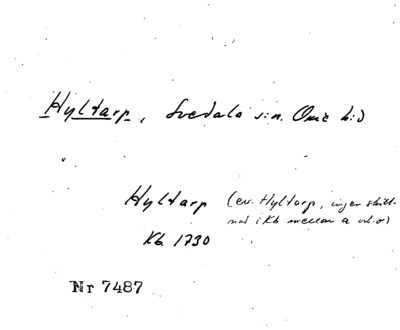 Hyltarp, Svedala s:n. Oxie h:d
Hyltarp (ev. Hyltorp, ingen skill-
nad i Kb mellan a och o)
Kb 1730
Nr 7487